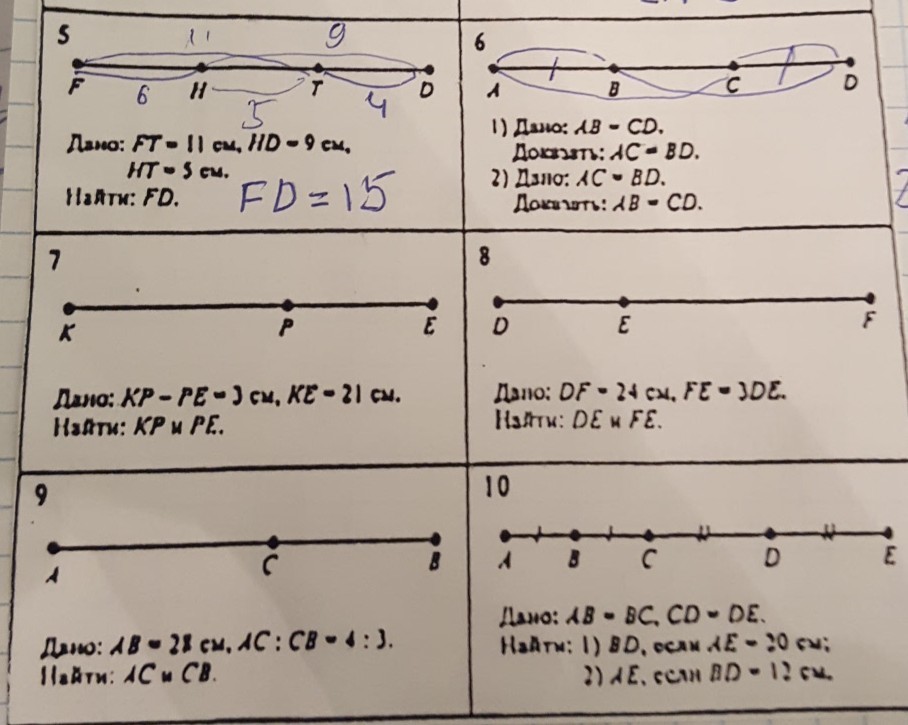 5
11 9
F H T D
6 5 4
Дано: FT = 11 см, HD = 9 см,
HT = 5 см.
Найти: FD.
FD = 15
6
A B C D
1) Дано: AB = CD.
Доказать: AC = BD.
2) Дано: AC = BD.
Доказать: AB = CD.
7
K P E
Дано: KP – PE = 3 см, KE = 21 см.
Найти: KP и PE.
8
D E F
Дано: DF = 24 см, FE = 3DE.
Найти: DE и FE.
9
A C B
Дано: AB = 28 см, AC : CB = 4 : 3.
Найти: AC и CB.
10
A B C D E
Дано: AB = BC, CD = DE.
Найти: 1) BD, если AE = 20 см;
2) AE, если BD = 12 см.